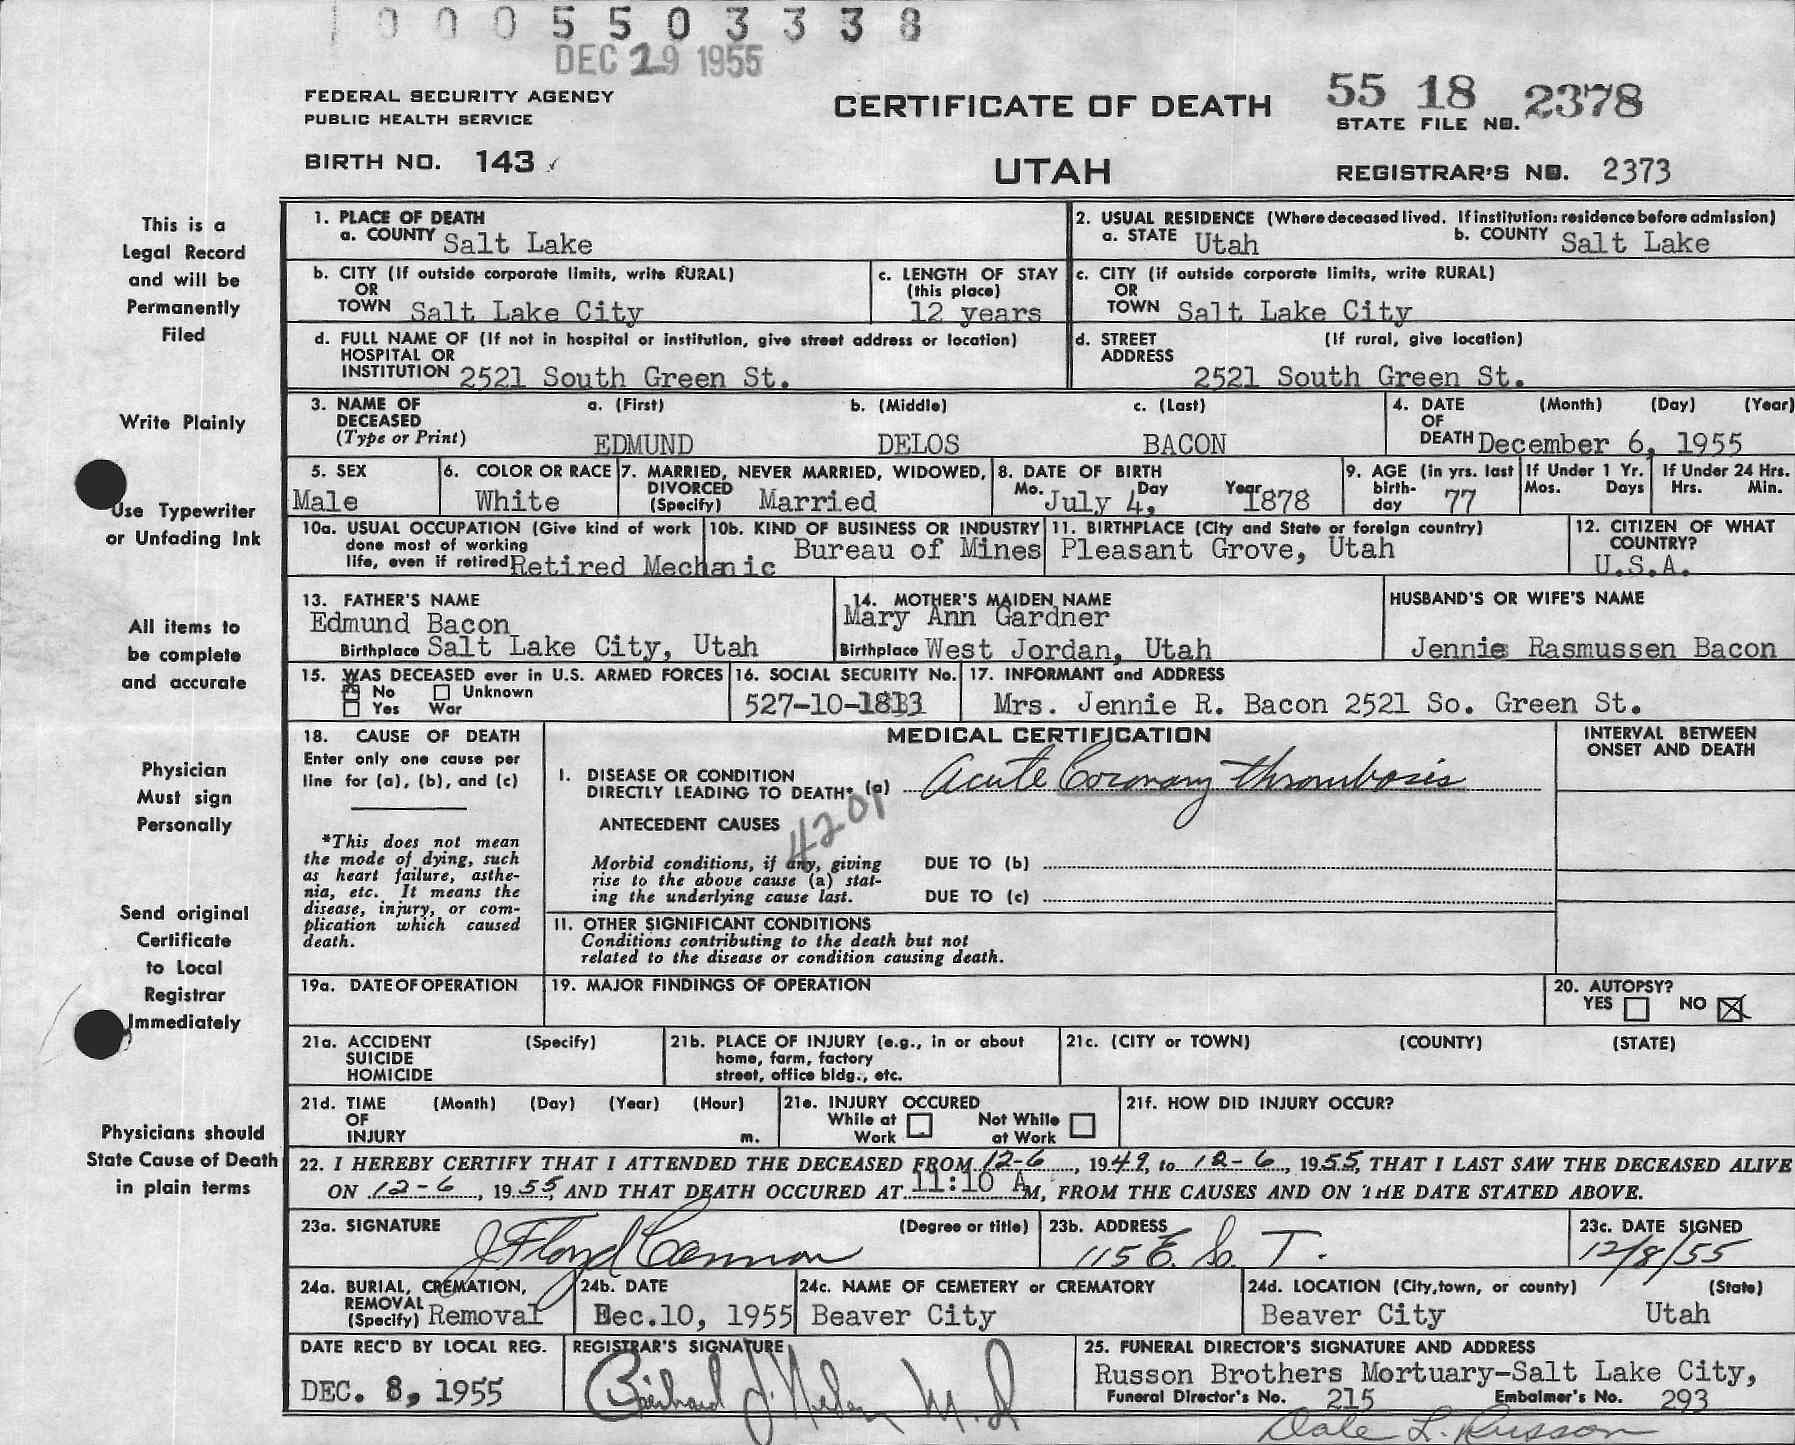 0 0 0 5 5 0 3 3 3 8
DEC 29 1955
FEDERAL SECURITY AGENCY
PUBLIC HEALTH SERVICE
BIRTH NO. 143
CERTIFICATE OF DEATH
UTAH
55 18 2378
STATE FILE NO.
REGISTRAR'S NO. 2373
This is a
Legal Record
and will be
Permanently
Filed
Write Plainly
Use Typewriter
or Unfading Ink
All items to
be complete
and accurate
Physician
Must sign
Personally
Send original
Certificate
to Local
Registrar
Immediately
Physicians should
State Cause of Death
in plain terms
1. PLACE OF DEATH
a. COUNTY Salt Lake
2. USUAL RESIDENCE (Where deceased lived. If institution: residence before admission)
a. STATE Utah b. COUNTY Salt Lake
b. CITY (If outside corporate limits, write RURAL)
OR
TOWN Salt Lake City
c. LENGTH OF STAY
(this place)
12 years
c. CITY (if outside corporate limits, write RURAL)
OR
TOWN Salt Lake City
d. FULL NAME OF (If not in hospital or institution, give street address or location)
HOSPITAL OR
INSTITUTION 2521 South Green St.
d. STREET (If rural, give location)
ADDRESS
2521 South Green St.
3. NAME OF a. (First) b. (Middle) c. (Last)
DECEASED
(Type or Print) EDMUND DELOS BACON
4. DATE (Month) (Day) (Year)
OF
DEATH December 6, 1955
5. SEX
Male
6. COLOR OR RACE
White
7. MARRIED, NEVER MARRIED, WIDOWED,
DIVORCED
(Specify) Married
8. DATE OF BIRTH
Mo. Day Year
July 4, 1878
9. AGE (in yrs. last
birth-
day 77
If Under 1 Yr.
Mos. Days
If Under 24 Hrs.
Hrs. Min.
10a. USUAL OCCUPATION (Give kind of work
done most of working
life, even if retired Retired Mechanic
10b. KIND OF BUSINESS OR INDUSTRY
Bureau of Mines
11. BIRTHPLACE (City and State or foreign country)
Pleasant Grove, Utah
12. CITIZEN OF WHAT
COUNTRY?
U.S.A.
13. FATHER'S NAME
Edmund Bacon
Birthplace Salt Lake City, Utah
14. MOTHER'S MAIDEN NAME
Mary Ann Gardner
Birthplace West Jordan, Utah
HUSBAND'S OR WIFE'S NAME
Jennie Rasmussen Bacon
15. WAS DECEASED ever in U.S. ARMED FORCES
No Unknown
Yes War
16. SOCIAL SECURITY No.
527-10-1813
17. INFORMANT and ADDRESS
Mrs. Jennie R. Bacon 2521 So. Green St.
18. CAUSE OF DEATH
Enter only one cause per
line for (a), (b), and (c)
*This does not mean
the mode of dying, such
as heart failure, asthe-
nia, etc. It means the
disease, injury, or com-
plication which caused
death.
MEDICAL CERTIFICATION
INTERVAL BETWEEN
ONSET AND DEATH
I. DISEASE OR CONDITION
DIRECTLY LEADING TO DEATH* (a) Acute Coronary thrombosis
4201
ANTECEDENT CAUSES
Morbid conditions, if any, giving
rise to the above cause (a) stat-
ing the underlying cause last.
DUE TO (b)
DUE TO (c)
11. OTHER SIGNIFICANT CONDITIONS
Conditions contributing to the death but not
related to the disease or condition causing death.
19a. DATE OF OPERATION
19. MAJOR FINDINGS OF OPERATION
20. AUTOPSY?
YES NO
21a. ACCIDENT (Specify)
SUICIDE
HOMICIDE
21b. PLACE OF INJURY (e.g., in or about
home, farm, factory
street, office bldg., etc.
21c. (CITY or TOWN) (COUNTY) (STATE)
21d. TIME (Month) (Day) (Year) (Hour)
OF
INJURY m.
21e. INJURY OCCURED
While at Not While
Work at Work
21f. HOW DID INJURY OCCUR?
22. I HEREBY CERTIFY THAT I ATTENDED THE DECEASED FROM 12-6, 1949, to 12-6, 1955, THAT I LAST SAW THE DECEASED ALIVE
ON 12-6, 1955, AND THAT DEATH OCCURED AT 11:10 A M, FROM THE CAUSES AND ON THE DATE STATED ABOVE.
23a. SIGNATURE (Degree or title)
J Floyd Cannon
23b. ADDRESS
115 E. So. T.
23c. DATE SIGNED
12/8/55
24a. BURIAL, CREMATION,
REMOVAL
(Specify) Removal
24b. DATE
Dec.10, 1955
24c. NAME OF CEMETERY or CREMATORY
Beaver City
24d. LOCATION (City,town, or county) (State)
Beaver City Utah
DATE REC'D BY LOCAL REG.
DEC. 8, 1955
REGISTRAR'S SIGNATURE
M.D
25. FUNERAL DIRECTOR'S SIGNATURE AND ADDRESS
Russon Brothers Mortuary-Salt Lake City,
Funeral Director's No. 215 Embalmer's No. 293
Dale L. Russon